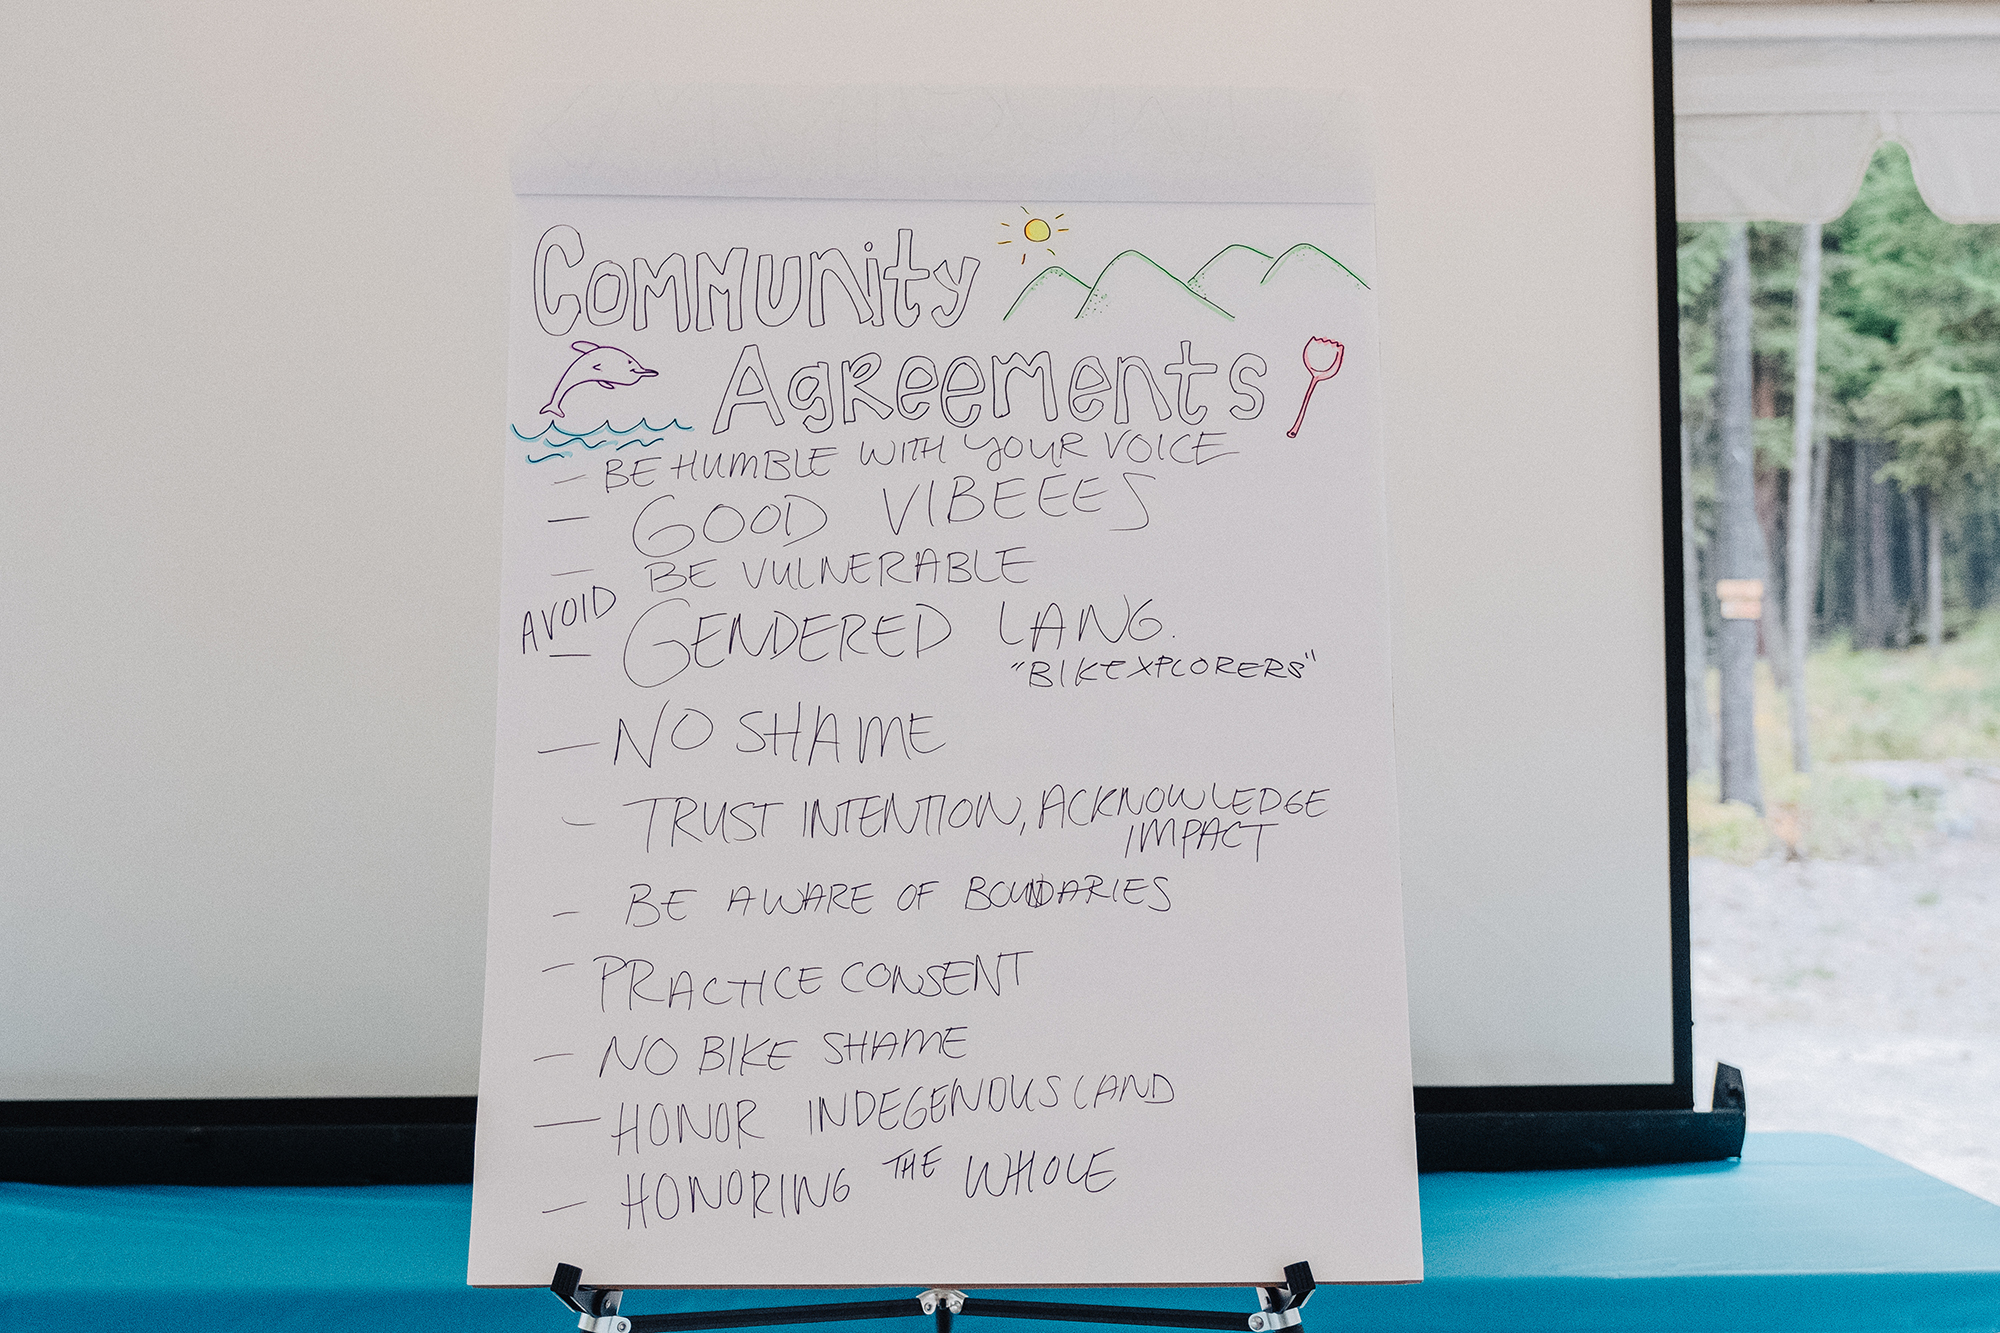 Community
Agreements
- BE HUMBLE WITH YOUR VOICE
- GOOD VIBEEES
- BE VULNERABLE
AVOID
- GENDERED LANG.
"BIKEXPLORERS"
- NO SHAME
- TRUST INTENTION, ACKNOWLEDGE
IMPACT
- BE AWARE OF BOUNDARIES
- PRACTICE CONSENT
- NO BIKE SHAME
- HONOR INDEGENOUS LAND
- HONORING THE WHOLE